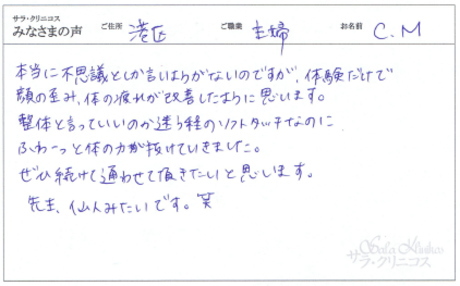 サラ・クリニコス
みなさまの声 ご住所 港区 ご職業 主婦 お名前 C.M
本当に不思議としか言いようがないのですが、体験だけで
顔の歪み、体の疲れが改善したように思います。
整体と言っていいのか迷う程のソフトタッチなのに
ふわーっと体の力が抜けていきました。
ぜひ続けて通わせて頂きたいと思います。
先生、仙人みたいです。笑
サラ・クリニコス